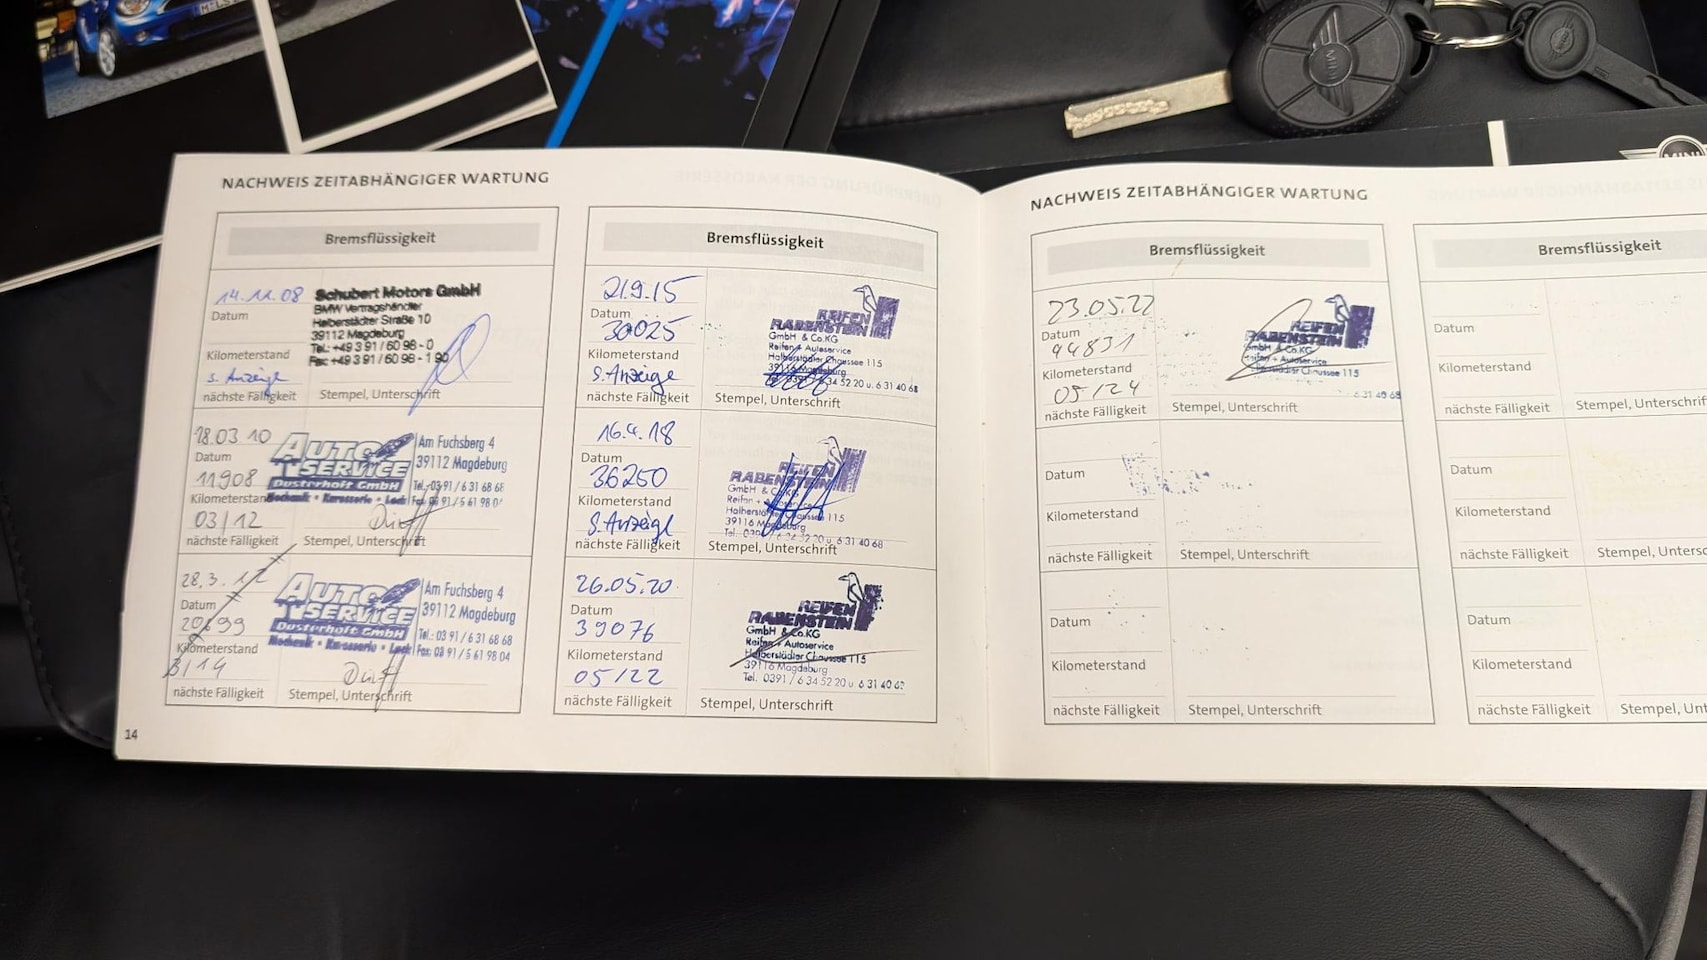 MINI
MINI
NACHWEIS ZEITABHÄNGIGER WARTUNG
Bremsflüssigkeit
14.11.08
Datum
Kilometerstand
s. Anzeige
nächste Fälligkeit
Schubert Motors GmbH
BMW Vertragshändler
Halberstädter Straße 10
39112 Magdeburg
Tel.: +49 3 91 / 60 98 - 0
Fax: +49 3 91 / 60 98 - 1 90
Stempel, Unterschrift
18.03 10
Datum
11908
Kilometerstand
03/12
nächste Fälligkeit
AUTO SERVICE
Dusterhoft GmbH
Mechanik • Karosserie • Lack
Am Fuchsberg 4
39112 Magdeburg
Tel.: 03 91 / 6 31 68 68
Fax: 03 91 / 5 61 98 04
Stempel, Unterschrift
28.3.12
Datum
20699
Kilometerstand
3/14
nächste Fälligkeit
AUTO SERVICE
Dusterhoft GmbH
Mechanik • Karosserie • Lack
Am Fuchsberg 4
39112 Magdeburg
Tel.: 03 91 / 6 31 68 68
Fax: 03 91 / 5 61 98 04
Stempel, Unterschrift
14
Bremsflüssigkeit
21.9.15
Datum
30025
Kilometerstand
S. Anzeige
nächste Fälligkeit
REIFEN
RABENSTEIN
GmbH & Co.KG
Reifen + Autoservice
Halberstädter Chaussee 115
39116 Magdeburg
Tel. 0391 / 6 34 52 20 u. 6 31 40 68
Stempel, Unterschrift
16.4.18
Datum
36250
Kilometerstand
S. Anzeige
nächste Fälligkeit
REIFEN
RABENSTEIN
GmbH & Co.KG
Reifen + Autoservice
Halberstädter Chaussee 115
39116 Magdeburg
Tel. 0391 / 6 34 52 20 u. 6 31 40 68
Stempel, Unterschrift
26.05.20
Datum
39076
Kilometerstand
05/22
nächste Fälligkeit
REIFEN
RABENSTEIN
GmbH & Co.KG
Reifen + Autoservice
Halberstädter Chaussee 115
39116 Magdeburg
Tel. 0391 / 6 34 52 20 u. 6 31 40 68
Stempel, Unterschrift
NACHWEIS ZEITABHÄNGIGER WARTUNG
Bremsflüssigkeit
23.05.22
Datum
44831
Kilometerstand
05/24
nächste Fälligkeit
REIFEN
RABENSTEIN
GmbH & Co.KG
Reifen + Autoservice
Halberstädter Chaussee 115
6 31 40 68
Stempel, Unterschrift
Datum
Kilometerstand
nächste Fälligkeit
Stempel, Unterschrift
Datum
Kilometerstand
nächste Fälligkeit
Stempel, Unterschrift
Bremsflüssigkeit
Datum
Kilometerstand
nächste Fälligkeit
Stempel, Unterschrif
Datum
Kilometerstand
nächste Fälligkeit
Stempel, Untersc
Datum
Kilometerstand
nächste Fälligkeit
Stempel, Unt